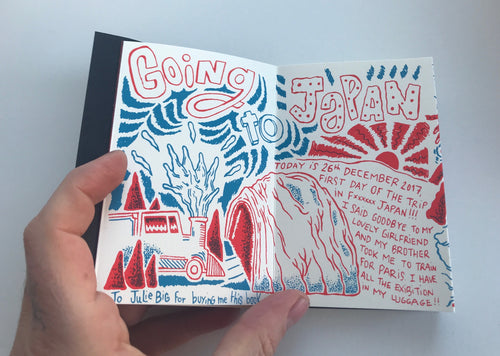 Going
to
JAPAN
TODAY IS 26th DECEMBER 2017,
FIRST DAY OF THE TRIP
IN Fxxxxxx JAPAN!!!
I SAID GOODBYE TO MY
LOVELY GIRLFRIEND
AND MY BROTHER
TOOK ME TO TRAIN
FOR PARIS. I HAVE
ALL THE EXIBITION
IN MY LUGGAGE!!
To Julie BIG for buying me this book